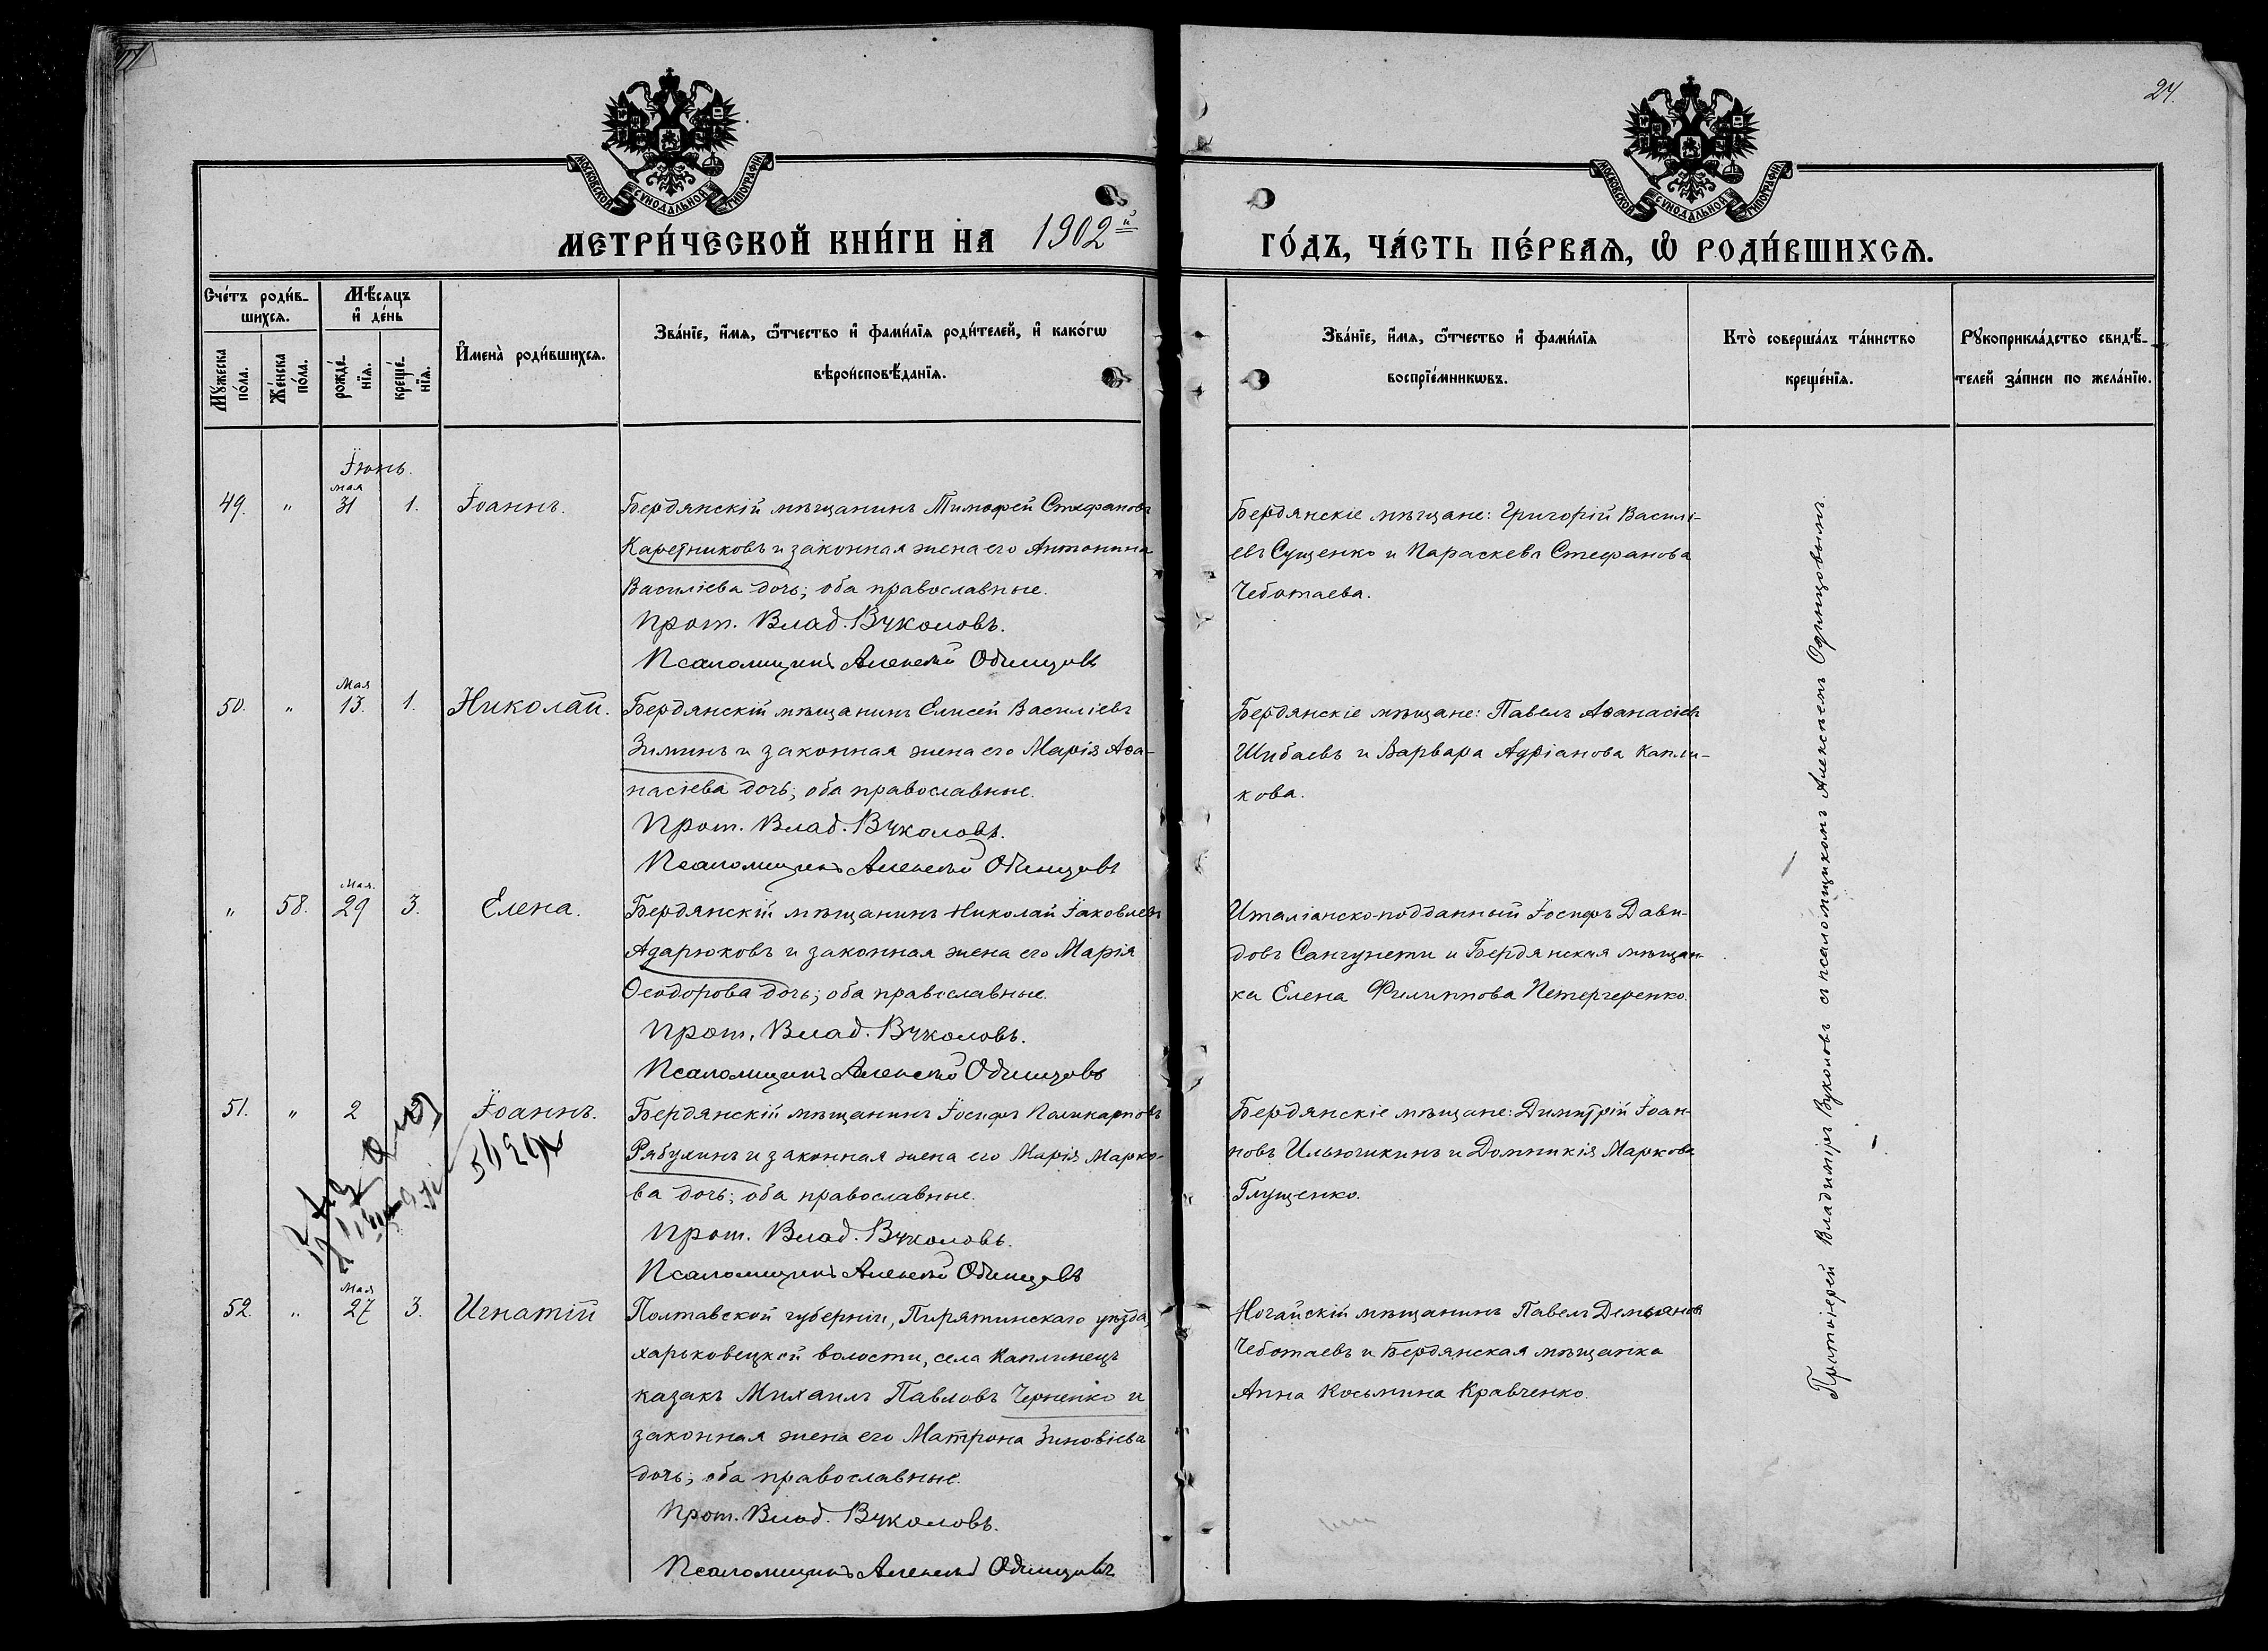 24.
МОСКОВСКОЙ СѴНОДАЛЬНОЙ ТИПОГРАФІИ
МОСКОВСКОЙ СѴНОДАЛЬНОЙ ТИПОГРАФІИ
МЕТРИ́ЧЕСКОЙ КНИ́ГИ НА 1902й ГО́ДЪ, ЧА́СТЬ ПЕ́РВАѦ, Ѡ҆ РОДИ́ВШИХСѦ.
Сче́тъ роди́в-
шихсѧ.
Мꙋ́жеска по́ла.
Же́нска по́ла.
Мѣ́сѧцъ
и҆ де́нь
рожде́-
нїѧ.
креще́-
нїѧ.
И҆мена̀ роди́вшихсѧ.
Зва́нїе, и҆́мѧ, ѻ҆́тчество и҆ фами́лїѧ роди́телей, и҆ како́гѡ
вѣроисповѣ́данїѧ.
Зва́нїе, и҆́мѧ, ѻ҆́тчество и҆ фами́лїѧ
воспрїе́мникѡвъ.
Кто̀ соверша́лъ та́инство
креще́нїѧ.
Рꙋкоприкла́дство свидѣ́-
телей за́писи по жела́нїю.
Іюнь.
мая
49. " 31 1. Іоаннъ.
Бердянскій мѣщанинъ Тимофей Стефановъ
Каретниковъ и законная жена его Антонина
Василіева дочь; оба православные.
Прот. Влад. Вуколовъ.
Псаломщикъ Алексѣй Одинцовъ
Бердянскіе мѣщане: Григорій Василі-
евъ Сущенко и Параскева Стефанова
Чеботаева.
Мая
50. " 13. 1. Николай.
Бердянскій мѣщанинъ Елисей Василіевъ
Зиминъ и законная жена его Марія Аѳа-
насіева дочь; оба православные.
Прот. Влад. Вуколовъ.
Псаломщикъ Алексѣй Одинцовъ
Бердянскіе мѣщане: Павелъ Аѳанасіевъ
Шибаевъ и Варвара Адріанова Капли-
кова.
Мая.
" 58. 29 3. Елена.
Бердянскій мѣщанинъ Николай Іаковлевъ
Адарюковъ и законная жена его Марія
Ѳеодорова дочь; оба православные.
Прот. Влад. Вуколовъ.
Псаломщикъ Алексѣй Одинцовъ
Италіанско-подданный Іосифъ Дави-
довъ Сангунети и Бердянская мѣщан-
ка Елена Филиппова Петергеренко.
51. " 2 Іоаннъ.
Бердянскій мѣщанинъ Іосифъ Поликарповъ
Рябухинъ и законная жена его Марія Марко-
ва дочь; оба православные.
Прот. Влад. Вуколовъ.
Псаломщикъ Алексѣй Одинцовъ
Бердянскіе мѣщане: Димитрій Іоан-
новъ Ильючикинъ и Домникія Маркова
Глущенко.
Мая
52. " 27 3. Игнатій
Полтавской губерніи, Пирятинскаго уѣзда,
харьковецкой волости, села Каплинецъ
казакъ Михаилъ Павловъ Черненко и
законная жена его Матрона Зиновіева
дочь; оба православные.
Прот. Влад. Вуколовъ.
Псаломщикъ Алексѣй Одинцовъ
Ногайскій мѣщанинъ Павелъ Демьяновъ
Чеботаевъ и Бердянская мѣщанка
Анна Косьмина Кравченко.
Протоіерей Владиміръ Вуколовъ съ псаломщикомъ Алексѣемъ Одинцовымъ.